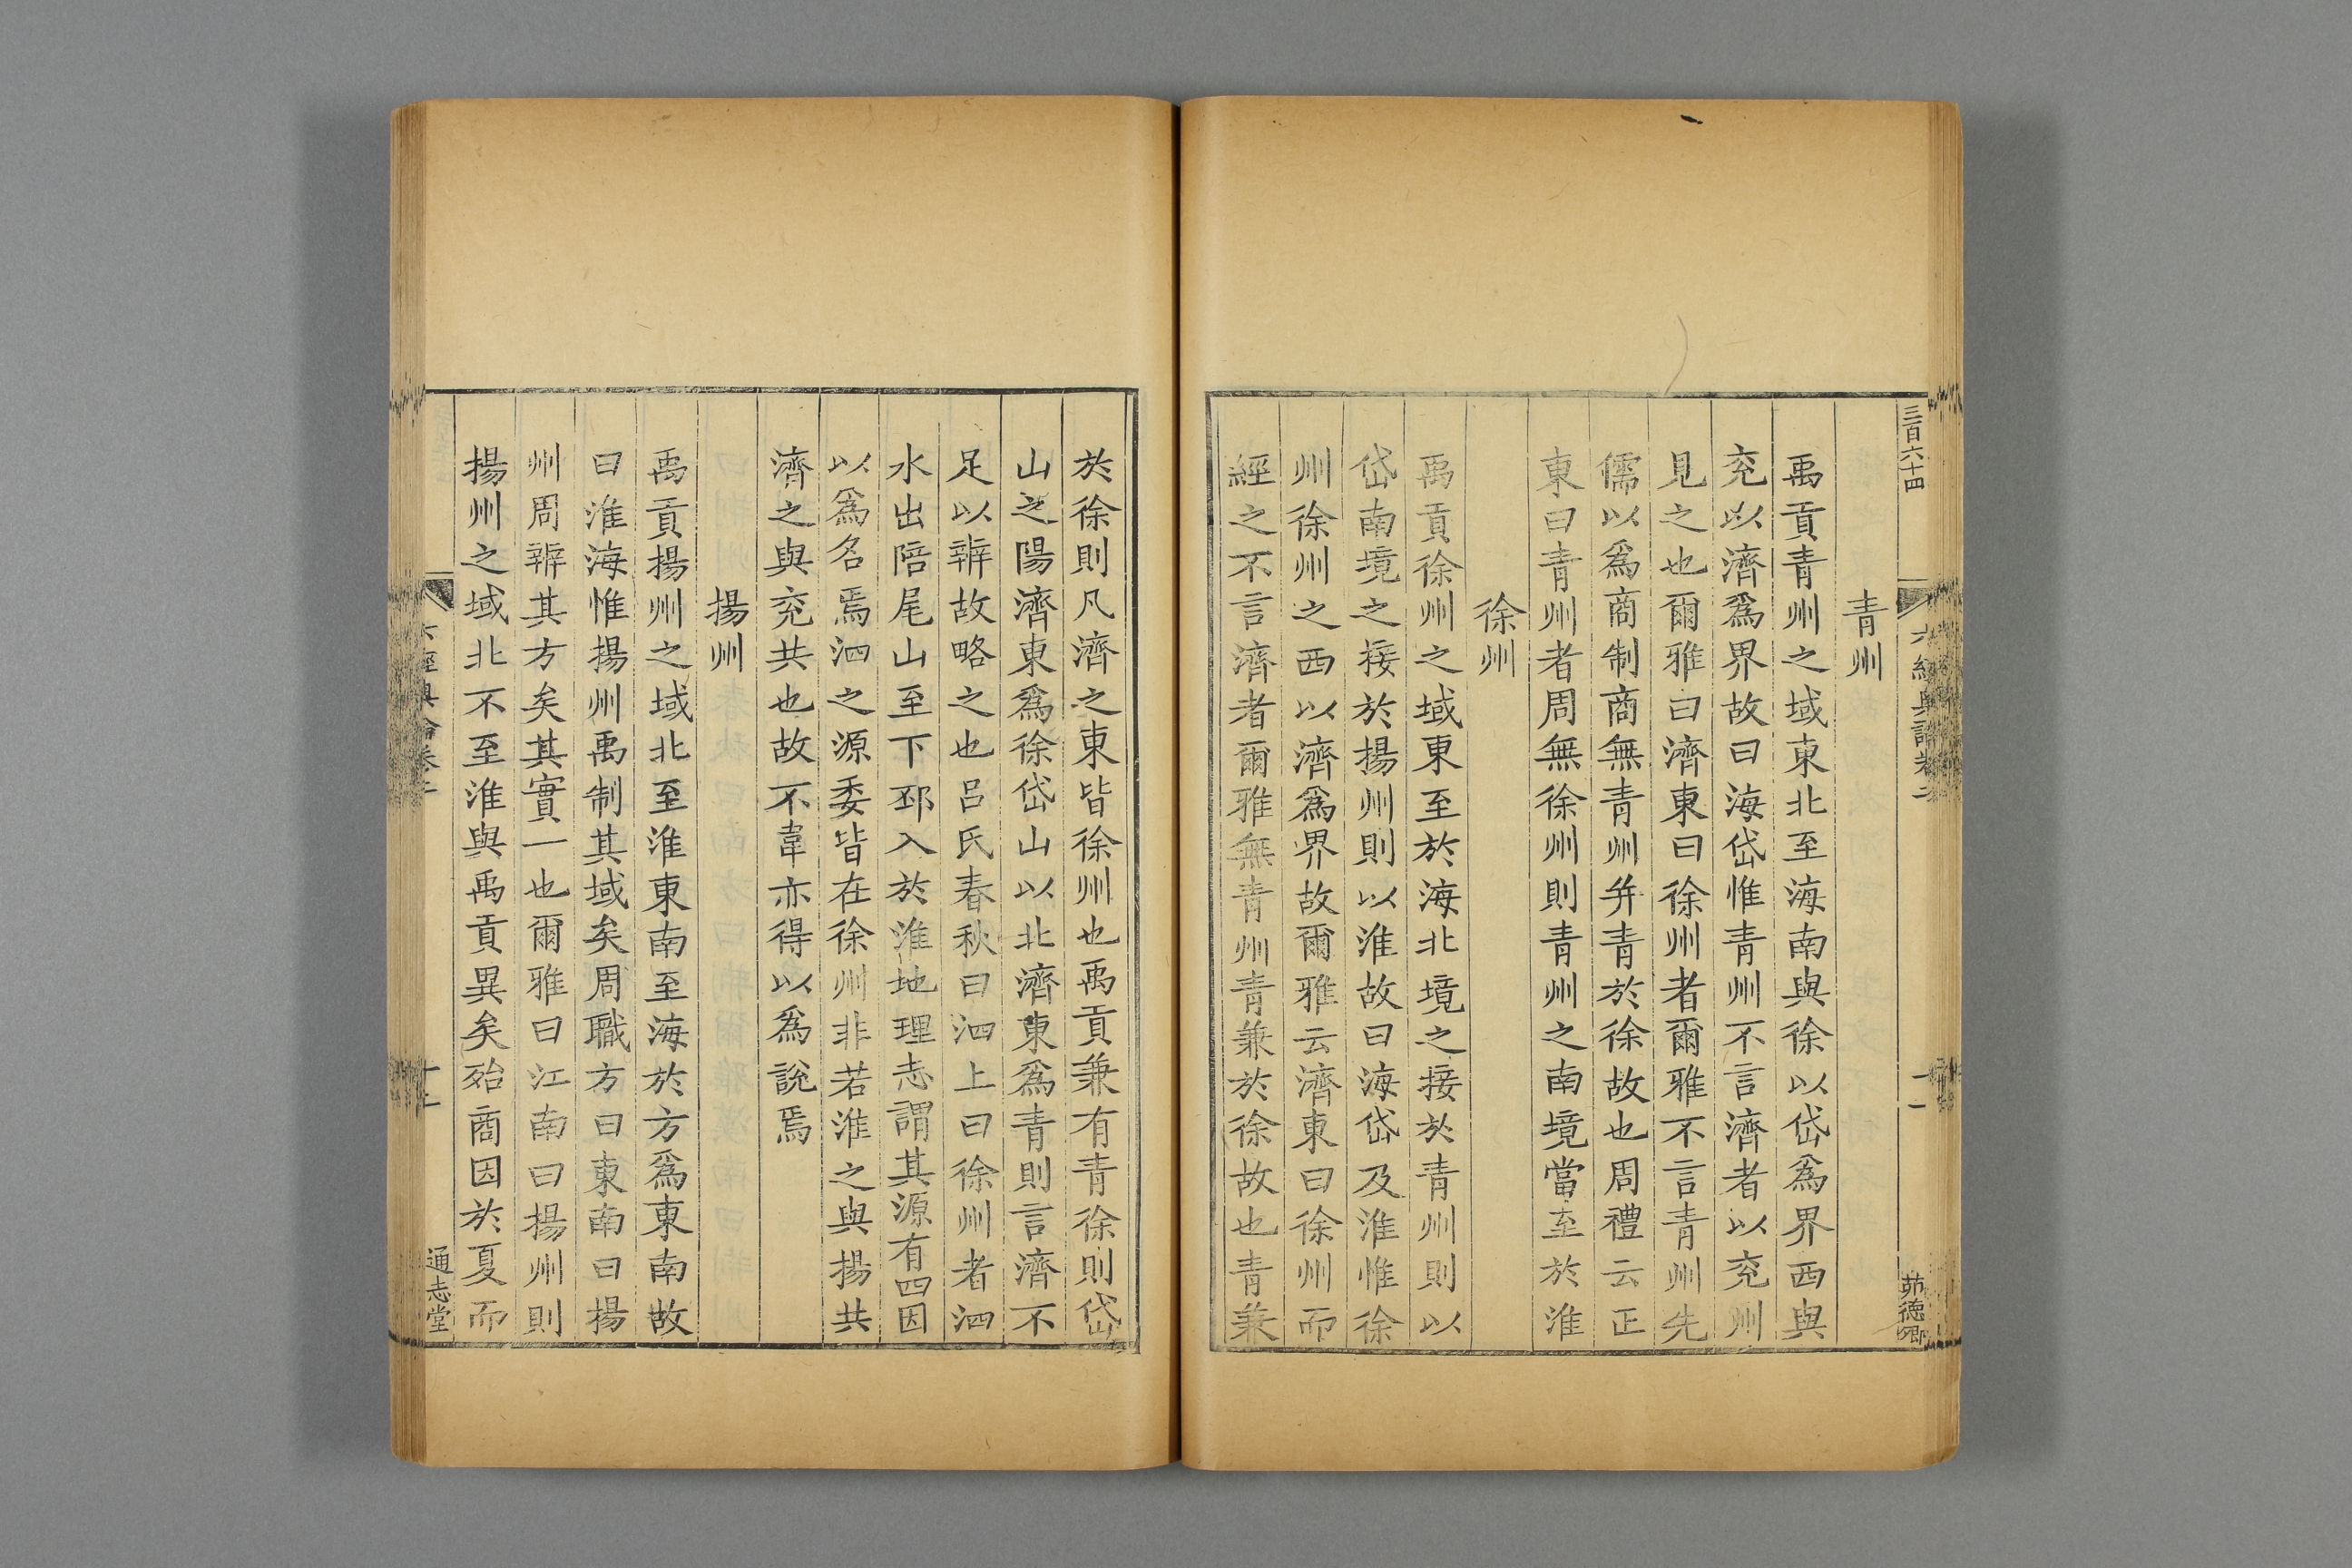 三百六十四
茆德卿
青州
禹貢青州之域東北至海南與徐以岱爲界西與
兖以濟爲界故曰海岱惟青州不言濟者以兖州
見之也爾雅曰濟東曰徐州者爾雅不言青州先
儒以爲商制商無青州并青於徐故也周禮云正
東曰青州者周無徐州則青州之南境當至於淮
徐州
禹貢徐州之域東至於海北境之接於青州則以
岱南境之接於揚州則以淮故曰海岱及淮惟徐
州徐州之西以濟爲界故爾雅云濟東曰徐州而
經之不言濟者爾雅無青州青兼於徐故也青兼
於徐則凡濟之東皆徐州也禹貢兼有青徐則岱
山之陽濟東爲徐岱山以北濟東爲青則言濟不
足以辨故略之也呂氏春秋曰泗上曰徐州者泗
水出陪尾山至下邳入於淮地理志謂其源有四因
以爲名焉泗之源委皆在徐州非若淮之與揚共
濟之與兖共也故不韋亦得以爲說焉
揚州
禹貢揚州之域北至淮東南至海於方爲東南故
曰淮海惟揚州禹制其域矣周職方曰東南曰揚
州周辨其方矣其實一也爾雅曰江南曰揚州則
揚州之域北不至淮與禹貢異矣殆商因於夏而
通志堂